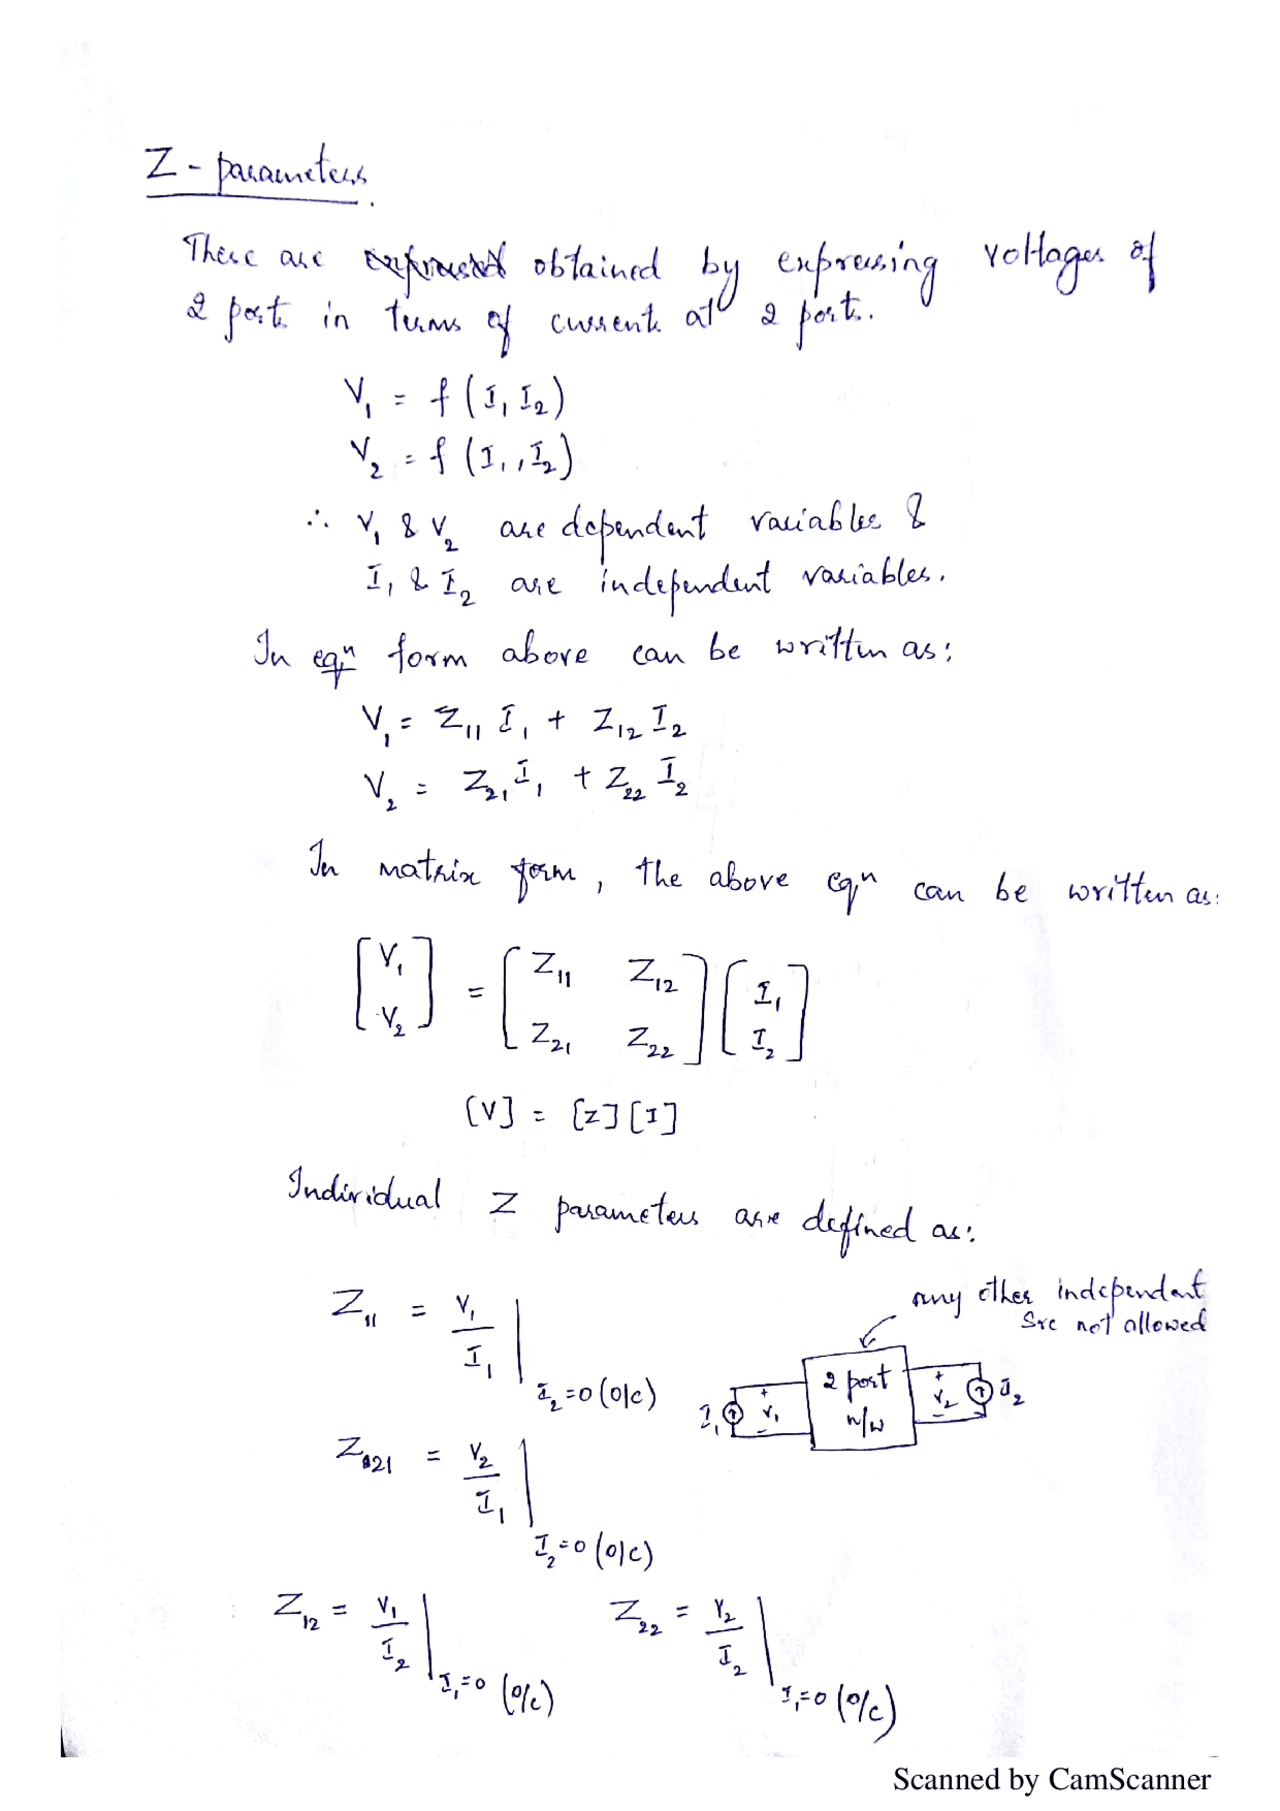 Z - parameters.
These are obtained by expressing voltages of
2 ports in terms of currents at 2 ports.
V₁ = f (I₁ I₂)
V₂ = f (I₁, I₂)
∴ V₁ & V₂ are dependent variables &
I₁ & I₂ are independent variables.
In eqⁿ form above can be written as:
V₁ = Z₁₁ I₁ + Z₁₂ I₂
V₂ = Z₂₁ I₁ + Z₂₂ I₂
In matrix form, the above eqⁿ can be written as:
[V₁ V₂] = [Z₁₁ Z₁₂ Z₂₁ Z₂₂] [I₁ I₂]
[V] = [Z] [I]
Individual Z parameters are defined as:
Z₁₁ = V₁/I₁ | I₂=0 (O/C)
any other independent
Src not allowed
I₁ + V₁ - 2 port n/w + V₂ - I₂
Z₂₁ = V₂/I₁ | I₂=0 (O/C)
Z₁₂ = V₁/I₂ | I₁=0 (O/C) Z₂₂ = V₂/I₂ | I₁=0 (O/C)
Scanned by CamScanner